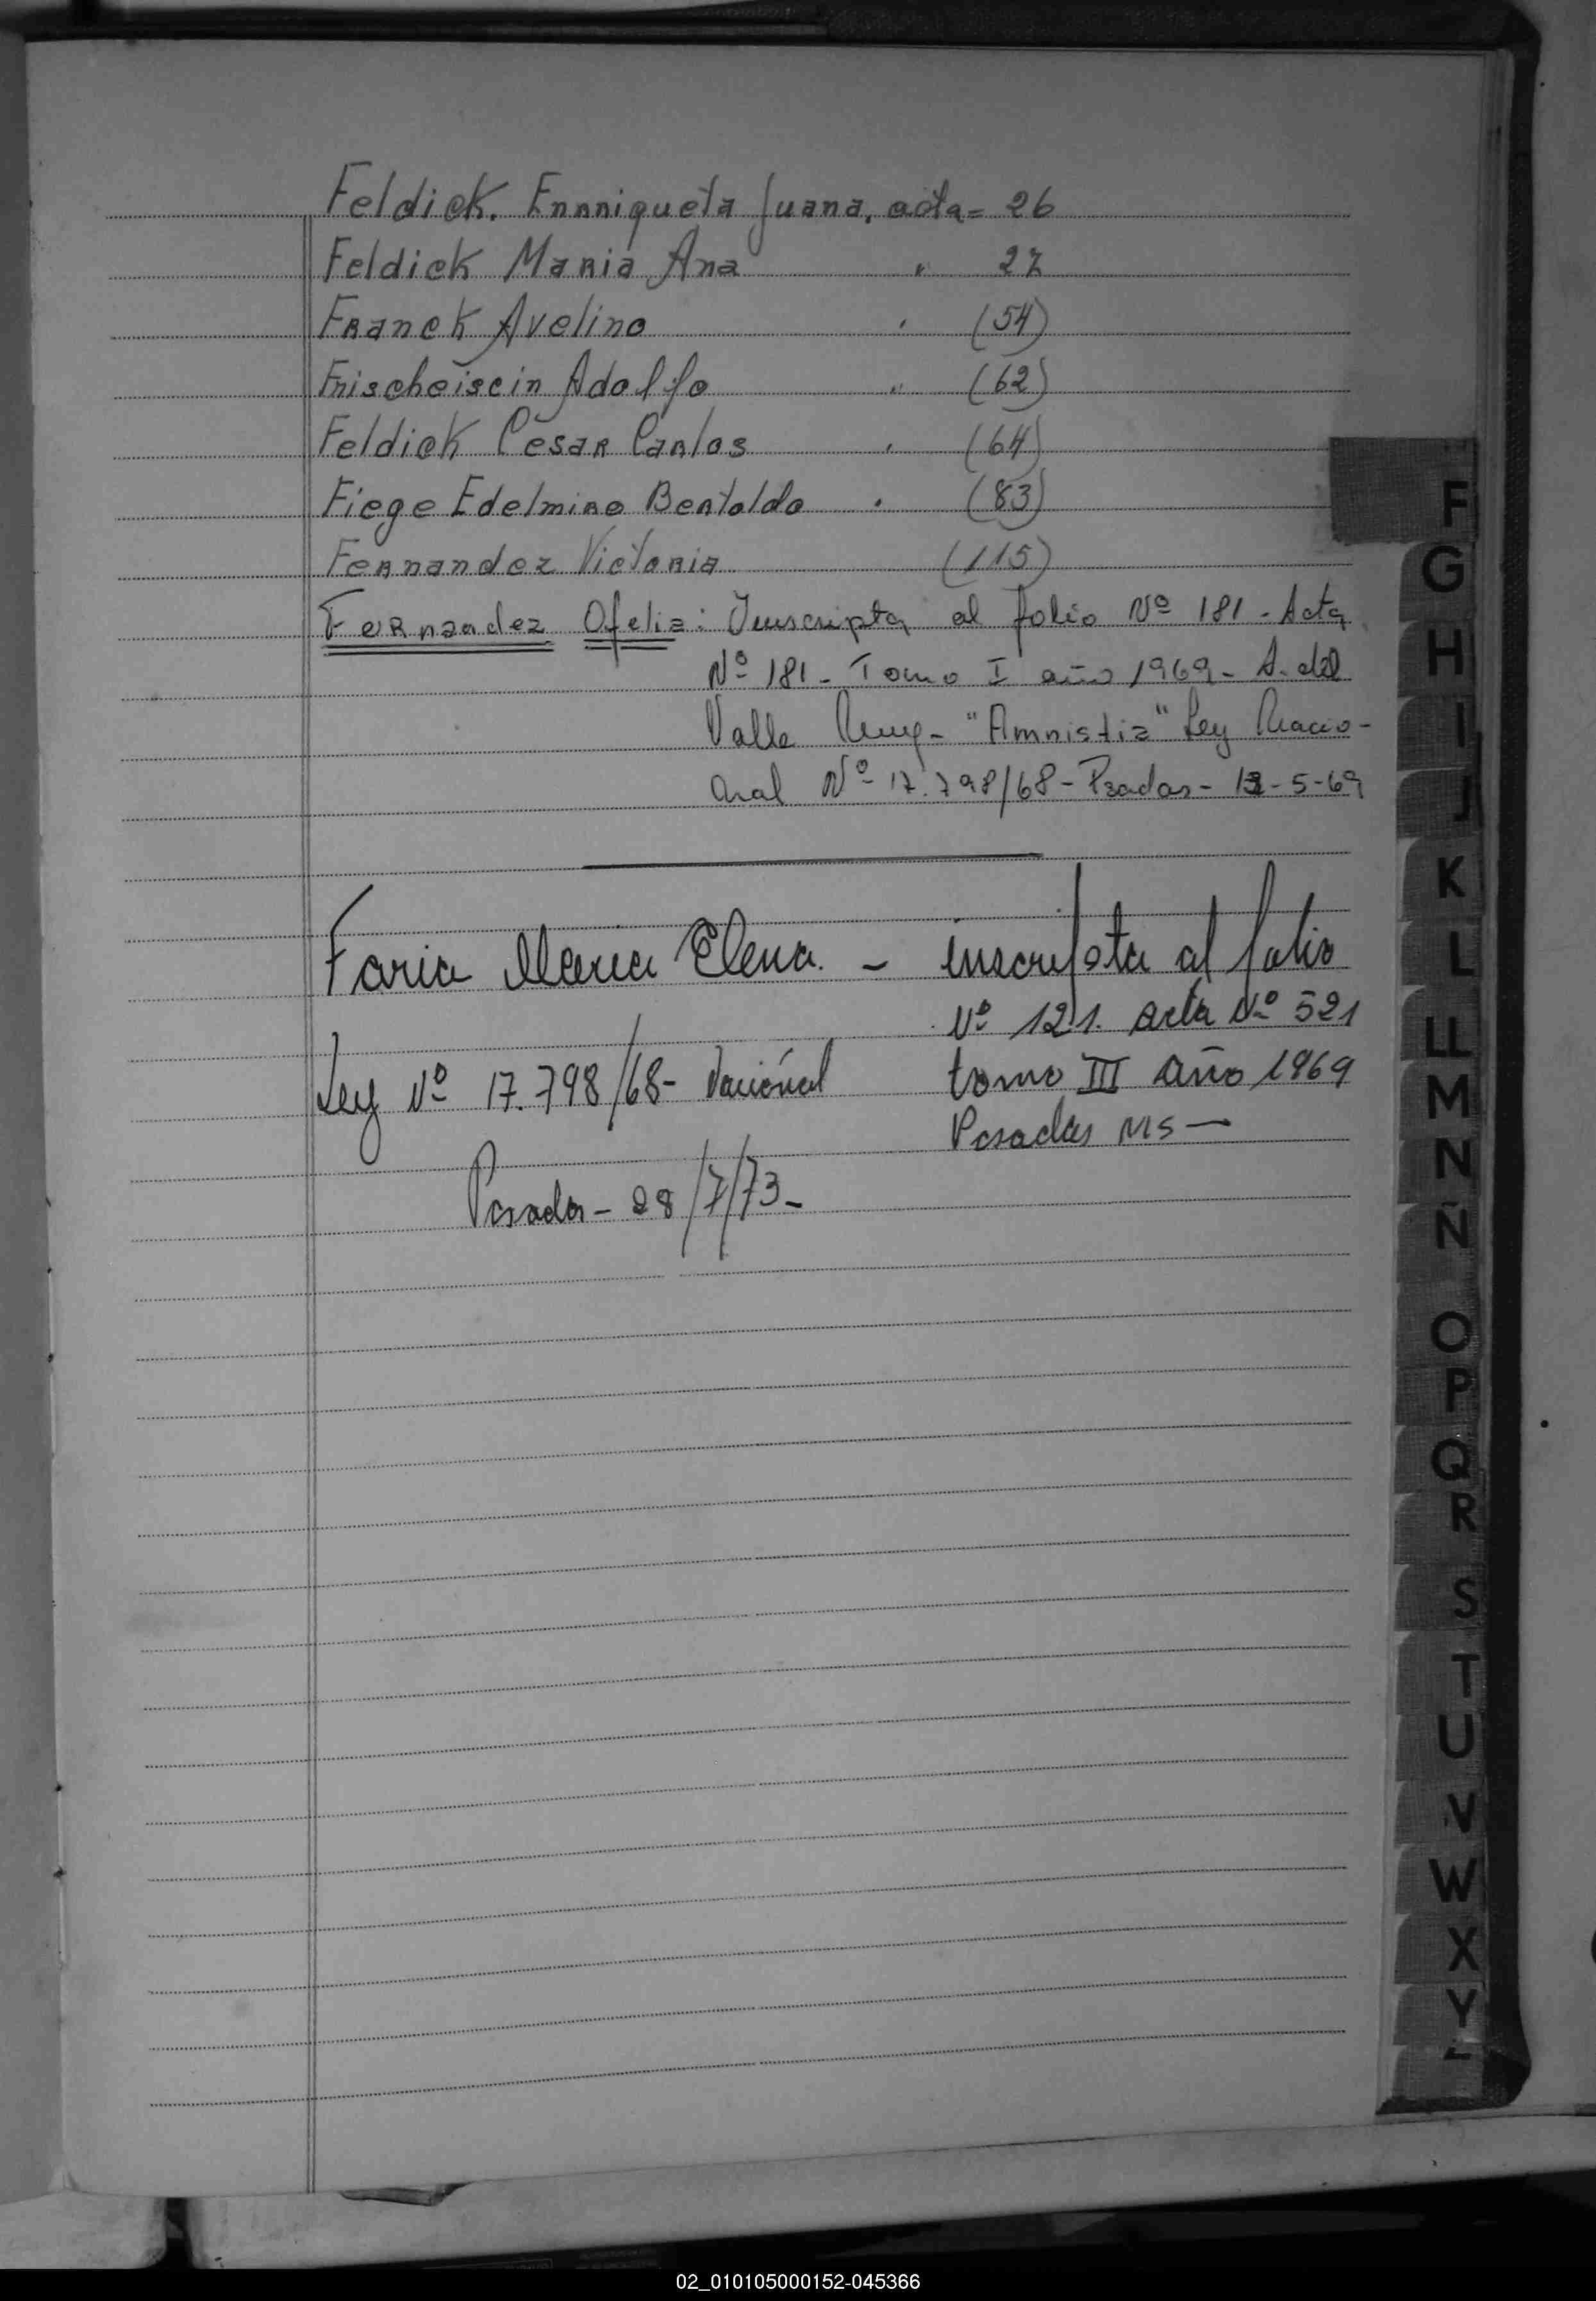 Feldick. Enrriqueta Juana, acta = 26
Feldick Maria Ana " 27
Franck Avelino " (54)
Frischeisein Adolfo " (62)
Feldick Cesar Carlos " (64)
Fiege Edelmiro Bertoldo " (83)
Fernandez Victoria (115)
Fernandez Ofelia: Inscripta al folio Nº 181 - Acta
Nº 181 - Tomo I año 1969 - A. del
Valle - "Amnistia" Ley Nacio-
nal Nº 17.798/68 - Posadas - 12-5-69
Faria Maria Elena. - inscripta al folio
Nº 121. acta Nº 521
Ley Nº 17.798/68 - Nacional tomo III año 1969
Posadas Ms —
Posadas - 28/7/73 -
F
G
H
I
J
K
L
LL
M
N
Ñ
O
P
Q
R
S
T
U
V
W
X
Y
02_010105000152-045366